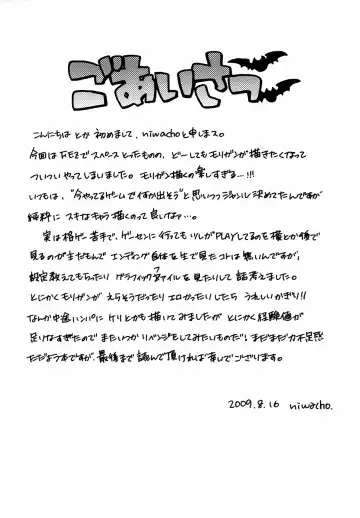 ごあいさつ
こんにちはとか初めまして、niwachoと申しまス。
今回はFEZでスペースとったものの、どーしてもモリガンが描きたくなって
ついついやってしまいました。モリガン描くの楽しすぎる…!!!
いつもは、"今やってるゲームで何か出そう"と思いつつジャンル決めてたんですが
純粋に スキなキャラ描くのって良いなァ…。
実は格ゲー苦手で、ゲーセンに行ってもツレがPLAYしてるのを横とか後で
見るのが主だもんで エンディング自体を生で見たコトは無いんですが、
設定教えてもらったり グラフィックファイルを見たりして 話考えました。
とにかくモリガンが えらそうだったり エロかったりしたら うれしいかぎり!!
なんか中途ハンパに ケリとかも描いてみましたが とにかく経験値が
足りなすぎたので またいつか リベンジをしてみたいものだ! まだまだ力不足感
ただよう本ですが、最後まで 読んで頂ければ幸いでございます。
2009.8.16 niwacho.